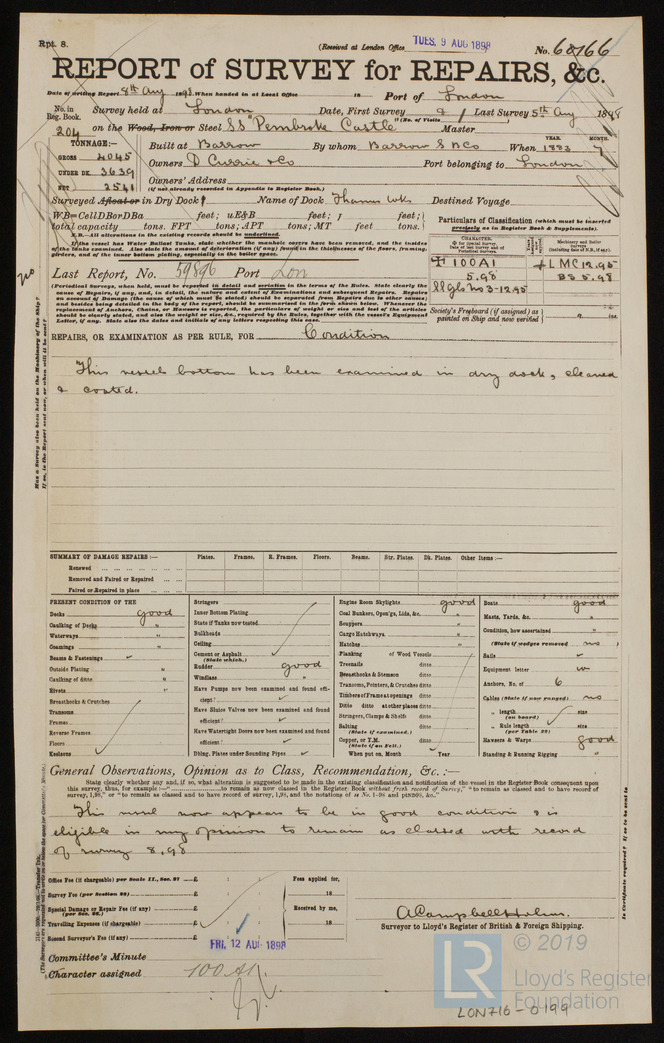 Rpt. 8.
(Received at London Office TUES. 9 AUG 1898
No. 68766
REPORT of SURVEY for REPAIRS, &c.
Date of writing Report 8th Aug 1898 When handed in at Local Office 18 Port of London
No. in Reg. Book. Survey held at London Date, First Survey & Last Survey 5th Aug 1898
(No. of Visits 1)
204 on the Wood, Iron or Steel SS "Pembroke Castle" Master
TONNAGE:—
GROSS 4045
UNDER DK. 3639
NET 2541
Built at Barrow By whom Barrow S B Co When 1883 7
YEAR. MONTH.
Owners D Currie & Co Port belonging to London
Owners' Address
(if not already recorded in Appendix to Register Book.)
Surveyed Afloat or in Dry Dock Name of Dock Thames Wks Destined Voyage
WB=CellDBorDBa feet; uE&B feet; feet;
total capacity tons. FPT tons; APT tons; MT feet tons.
N.B.—All alterations in the existing records should be underlined.
If the vessel has Water Ballast Tanks, state whether the manhole covers have been removed, and the insides
of the tanks examined. Also state the amount of deterioration (if any) found in the thicknesses of the floors, framing,
girders, and of the inner bottom plating, especially in the boiler space.
Particulars of Classification (which must be inserted precisely as in Register Book & Supplements).
CHARACTER.
Machinery and Boiler Surveys
(including date of N.B., if any).
100A1
5.98
LMC 12.95
BS 5.98
Last Report, No. 59896 Port Lon
(Periodical Surveys, when held, must be reported in detail and seriatim in the terms of the Rules. State clearly the
cause of Repairs, if any, and, in detail, the nature and extent of Examinations and subsequent Repairs. Repairs
on account of Damage (the cause of which must be stated) should be separated from Repairs due to other causes;
and besides being detailed in the body of the report, should be summarised in the form shown below. Whenever the
replacement of Anchors, Chains, or Hawsers is reported, the particulars of weight or size and test of the articles
should be clearly stated, and also the weight or size, &c., required by the Rules, together with the vessel's Equipment
Letter, if any. State also the dates and initials of any letters respecting this case.
Society's Freeboard (if assigned) as painted on Ship and now verified
REPAIRS, OR EXAMINATION AS PER RULE, FOR Condition
This vessels bottom has been examined in dry dock, cleaned
& coated.
SUMMARY OF DAMAGE REPAIRS:— Plates. Frames. R. Frames. Floors. Beams. Str. Plates. Dk. Plates. Other Items:—
Renewed
Removed and Faired or Repaired
Faired or Repaired in place
PRESENT CONDITION OF THE
Decks good
Caulking of Decks "
Waterways "
Coamings "
Beams & Fastenings
Outside Plating "
Caulking of ditto "
Rivets "
Breasthooks & Crutches
Transoms
Frames
Reverse Frames
Floors
Keelsons
Stringers
Inner Bottom Plating
State if Tanks now tested
Bulkheads
Ceiling
Cement or Asphalt
(State which.)
Rudder good
Windlass "
Have Pumps now been examined and found efficient?
Have Sluice Valves now been examined and found efficient?
Have Watertight Doors now been examined and found efficient?
Dblng. Plates under Sounding Pipes
Engine Room Skylights good
Coal Bunkers, Open'gs, Lids, &c. "
Scuppers "
Cargo Hatchways "
Hatches "
Planking of Wood Vessels
Treenails ditto
Breasthooks & Stemson ditto
Transoms, Pointers, & Crutches ditto
Timbers of Frame at openings ditto
Ditto ditto at other places ditto
Stringers, Clamps & Shelfs ditto
Salting ditto
(State if examined.)
Copper, or Y.M. ditto
(State if on Felt.)
When put on, Month Year
Boats good
Masts, Yards, &c. "
Condition, how ascertained "
(State if wedges removed no)
Sails
Equipment letter
Anchors, No. of 6
Cables (State if now ranged) no
" length size
(on board)
" Rule length size
(per Table 22)
Hawsers & Warps good
Standing & Running Rigging "
General Observations, Opinion as to Class, Recommendation, &c.:—
State clearly whether any and, if so, what alteration is suggested to be made in the existing classification and notification of the vessel in the Register Book consequent upon
this survey, thus, for example:—" to remain as now classed in the Register Book without fresh record of Survey," "to remain as classed and to have record of
survey, 1,98," or "to remain as classed and to have record of survey, 1,98, and the notations of ss No. 1-98 and ptND93, &c."
This vessel now appears to be in good condition & is
eligible in my opinion to remain as classed with record
of survey 8,98
Office Fee (if chargeable) per Scale II., Sec. 27 £
Survey Fee (per Section 28) £
Special Damage or Repair Fee (if any) £
(per Sec. 28.)
Travelling Expenses (if chargeable) £
Second Surveyor's Fee (if any) £
Fees applied for,
18
Received by me,
18
A Campbell Holms.
Surveyor to Lloyd's Register of British & Foreign Shipping.
FRI. 12 AUG 1898
Committee's Minute
Character assigned 100 A1.
© 2019
LR
Lloyd's Register
Foundation
LON716-0199